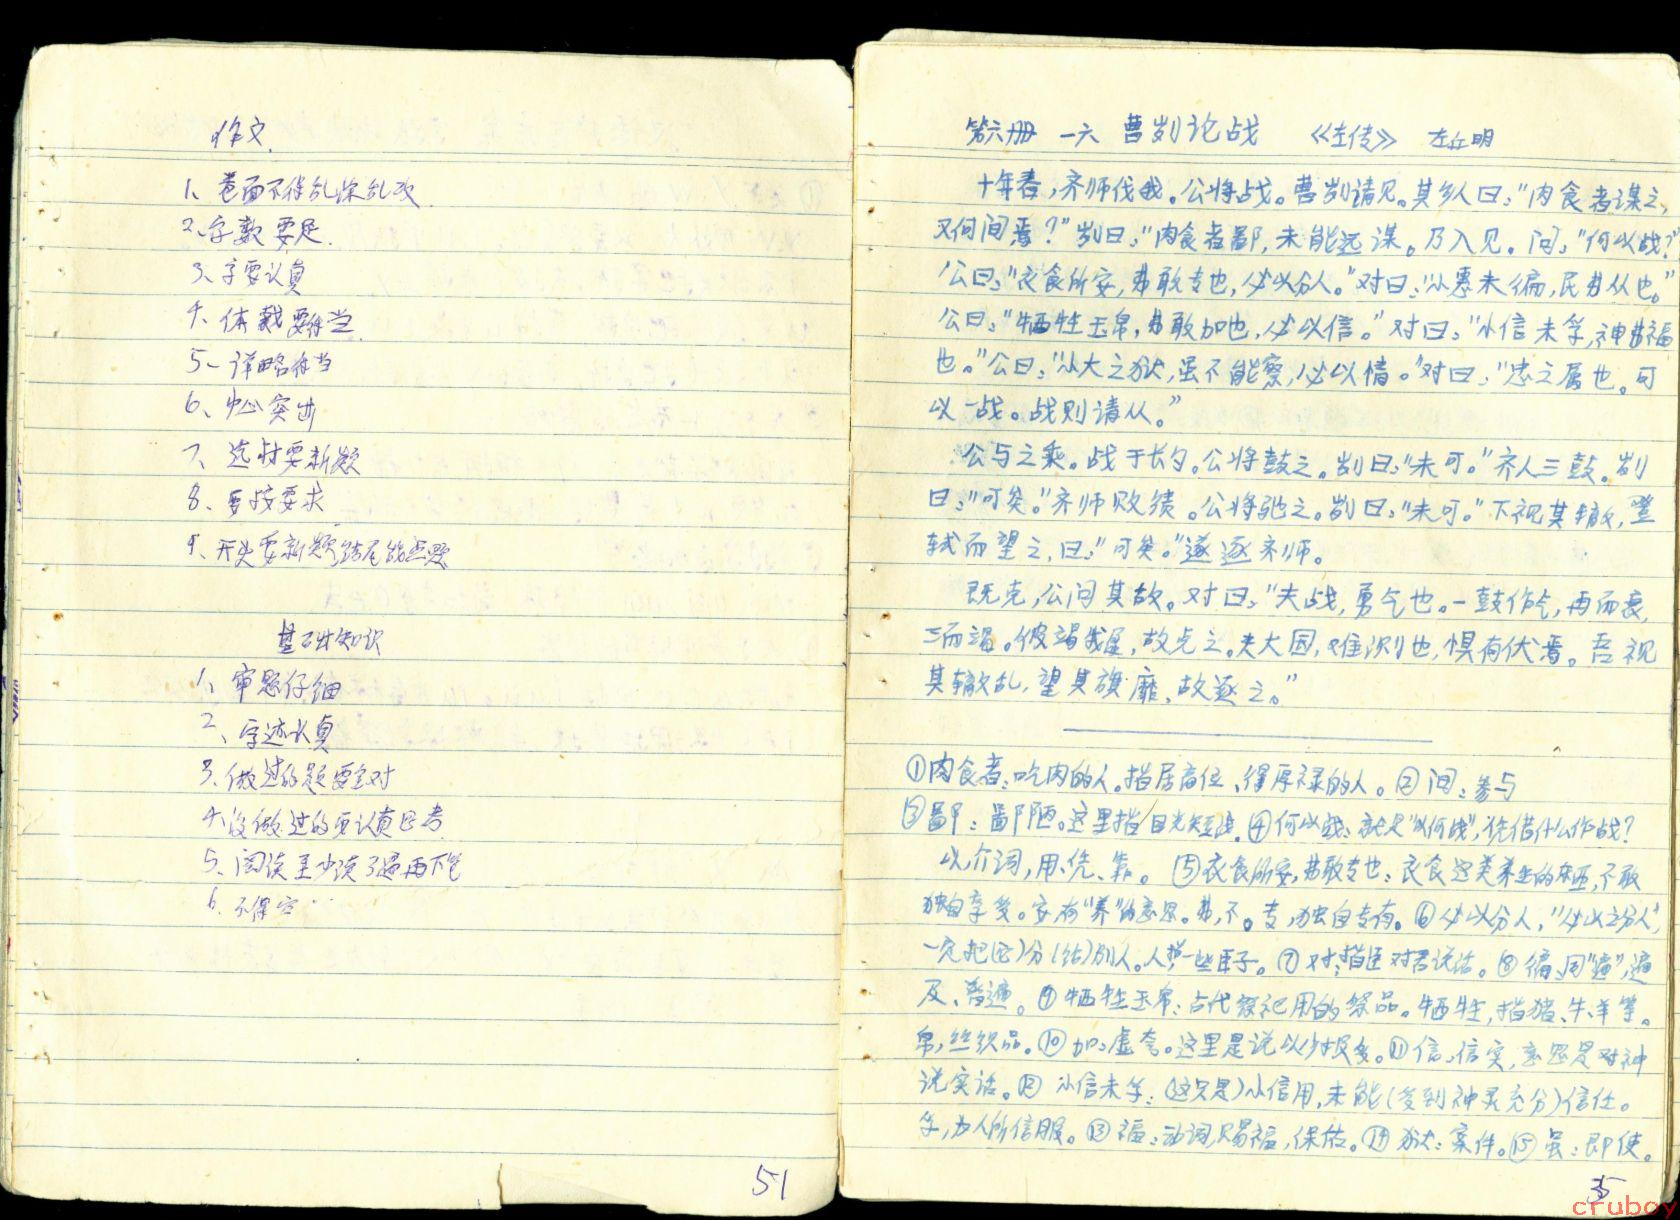 作文.
1、卷面不得乱涂乱改.
2、字数要足.
3、字要认真
4、体裁要得当.
5、详略得当
6、中心突出
7、选材要新颖
8、要按要求
9、开头要新颖,结尾能点题
基础知识
1、审题仔细
2、字迹认真
3、做过的题要全对
4、没做过的要认真思考
5、阅读至少读3遍再下笔
6、不得空··
51
第六册 一六 曹刿论战 《左传》 左丘明
十年春,齐师伐我。公将战。曹刿请见。其乡人曰:“肉食者谋之,
又何间焉?”刿曰:“肉食者鄙,未能远谋。乃入见。问:“何以战?”
公曰:“衣食所安,弗敢专也,必以分人。”对曰:“小惠未徧,民弗从也。”
公曰:“牺牲玉帛,弗敢加也,必以信。”对曰:“小信未孚,神弗福
也。”公曰:“小大之狱,虽不能察,必以情。”对曰:“忠之属也。可
以一战。战则请从。”
公与之乘。战于长勺。公将鼓之。刿曰:“未可。”齐人三鼓。刿
曰:“可矣。”齐师败绩。公将驰之。刿曰:“未可。”下视其辙,登
轼而望之,曰:“可矣。”遂逐齐师。
既克,公问其故。对曰:“夫战,勇气也。一鼓作气,再而衰,
三而竭。彼竭我盈,故克之。夫大国,难测也,惧有伏焉。吾视
其辙乱,望其旗靡,故逐之。”
①肉食者:吃肉的人。指居高位、得厚禄的人。②间:参与
③鄙:鄙陋。这里指目光短浅.④何以战:就是“以何战”,凭借什么作战?
以介词,用、凭、靠。⑤衣食所安,弗敢专也:衣食这类养生的东西,不敢
独自享受。安,有“养”的意思。弗,不。专,独自专有。⑥必以分人,“必以之分人”,
一定把(它)分(给)别人。人,指一些臣子。⑦对:指臣对君说话。⑧徧:同“遍”,遍
及、普遍。⑨牺牲玉帛:古代祭祀用的祭品。牺牲,指猪、牛、羊等。
帛,丝织品。⑩加:虚夸。这里是说以少报多。⑪信:信实,意思是对神
说实话。⑫小信未孚:(这只是)小信用,未能(受到神灵充分)信任。
孚,为人所信服。⑬福:动词,赐福,保佑。⑭狱:案件。⑮虽:即使。
cruboy